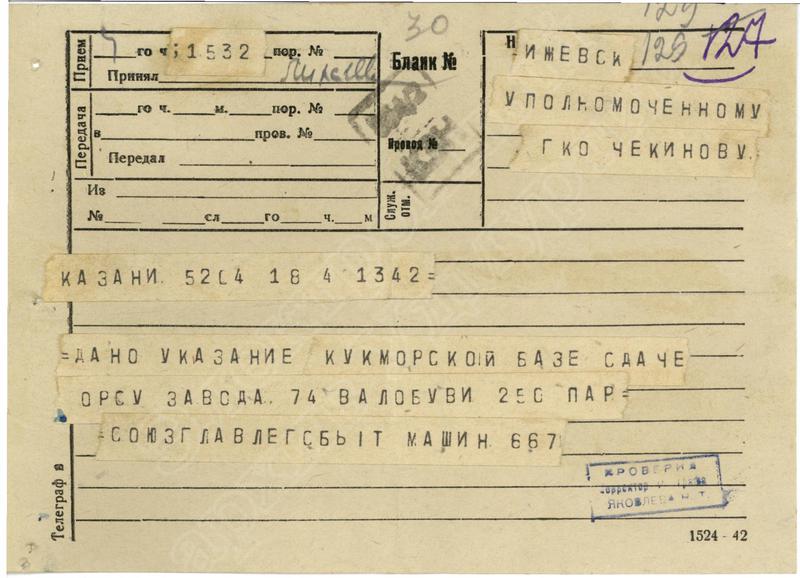 30
129
126 127
Прием
го ч; 1532 пор. №
Принял
Передача
го ч. м. пор. №
в пров. №
Передал
Из
№ сл го ч. м
Бланк №
Провод №
Служ. отм.
ИЖЕВСК
УПОЛНОМОЧЕННОМУ
ГКО ЧЕКИНОВУ.
КАЗАНИ. 5204 18 4 1342=
=ДАНО УКАЗАНИЕ КУКМОРСКОЙ БАЗЕ СДАЧЕ
ОРСУ ЗАВОДА. 74 ВАЛОБУВИ 250 ПАР=
=СОЮЗГЛАВЛЕГСБЫТ МАШИН 667
ЯКОВЛЕВА Н. Т.
Телеграф в
1524 - 42